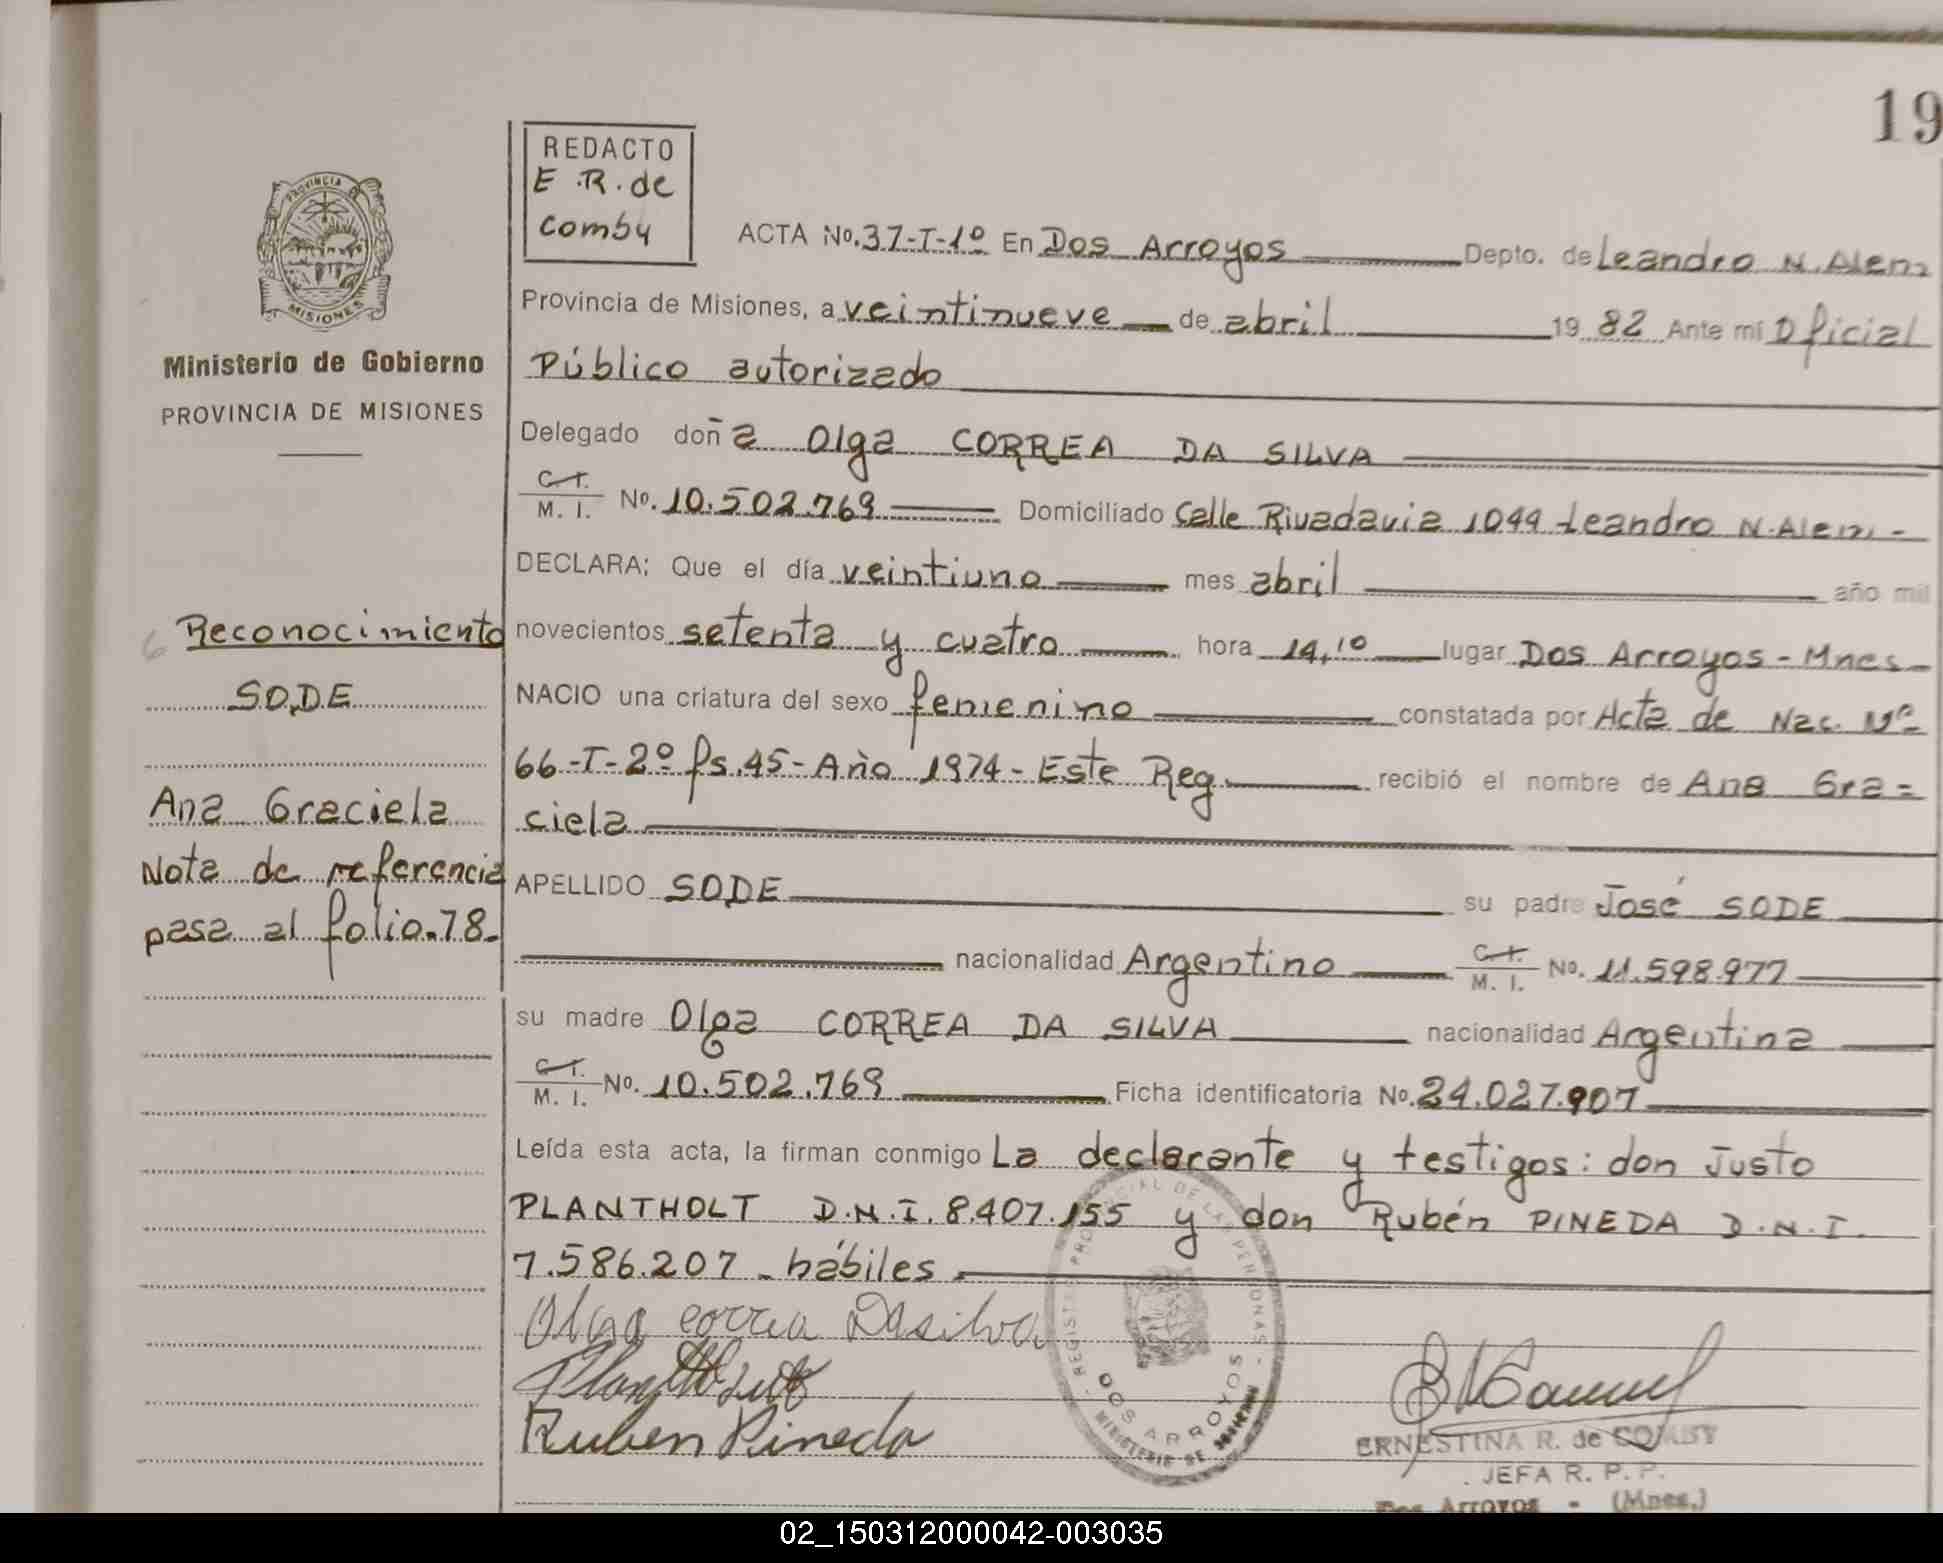 19
REDACTO
E.R. de
Comby
PROVINCIA DE
MISIONES
Ministerio de Gobierno
PROVINCIA DE MISIONES
ACTA No. 37-T-1º En Dos Arroyos Depto. de Leandro N. Alem
Provincia de Misiones, a veintinueve de abril 19 82 Ante mí Oficial
Público autorizado
Delegado doña Olga CORREA DA SILVA
C.I.
M. I. No. 10.502.769 Domiciliado Calle Rivadavia 1044 Leandro N. Alem -
DECLARA: Que el día veintiuno mes abril año mil
novecientos setenta y cuatro hora 14,10 lugar Dos Arroyos - Mnes -
NACIO una criatura del sexo femenino constatada por Acta de Nac. Nº
66-T-2º fs. 45 - Año 1974 - Este Reg. recibió el nombre de Ana Gra=
ciela
APELLIDO SODE su padre José SODE
nacionalidad Argentino C.I. M. I. No. 11.598.977
su madre Olga CORREA DA SILVA nacionalidad Argentina
C.I.
M. I. No. 10.502.769 Ficha identificatoria No. 24.027.907
Leída esta acta, la firman conmigo La declarante y testigos: don Justo
PLANTHOLT D.N.I. 8.407.155 y don Rubén PINEDA D.N.I.
7.586.207 - hábiles
Reconocimiento
SODE
Ana Graciela
Nota de referencia
pasa al folio 78-
Olga correa Dasilva
Ruben Pineda
REGISTRO PROVINCIAL DE LAS PERSONAS
DOS ARROYOS
MINISTERIO DE GOBIERNO
ERNESTINA R. de COMBY
JEFA R. P. P.
Dos Arroyos - (Mnes.)
02_150312000042-003035